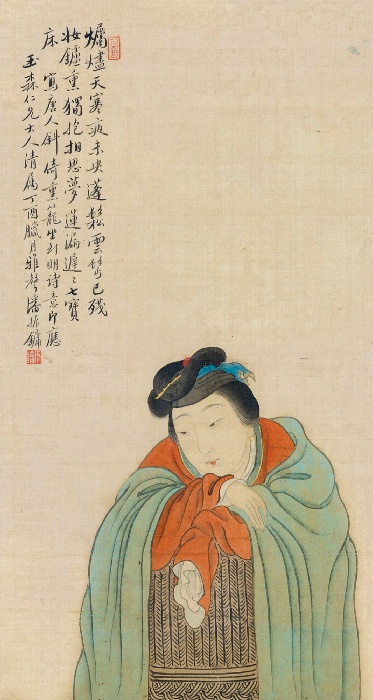 爥燼天寒夜未央蓬鬆雲髩已殘
妝鑪熏獨抱相思夢蓮漏遲遲七寶
床 寫唐人斜倚熏籠坐到明詩意即應
玉森仁兄大人清屬丁酉臘月雅聲潘振鏞